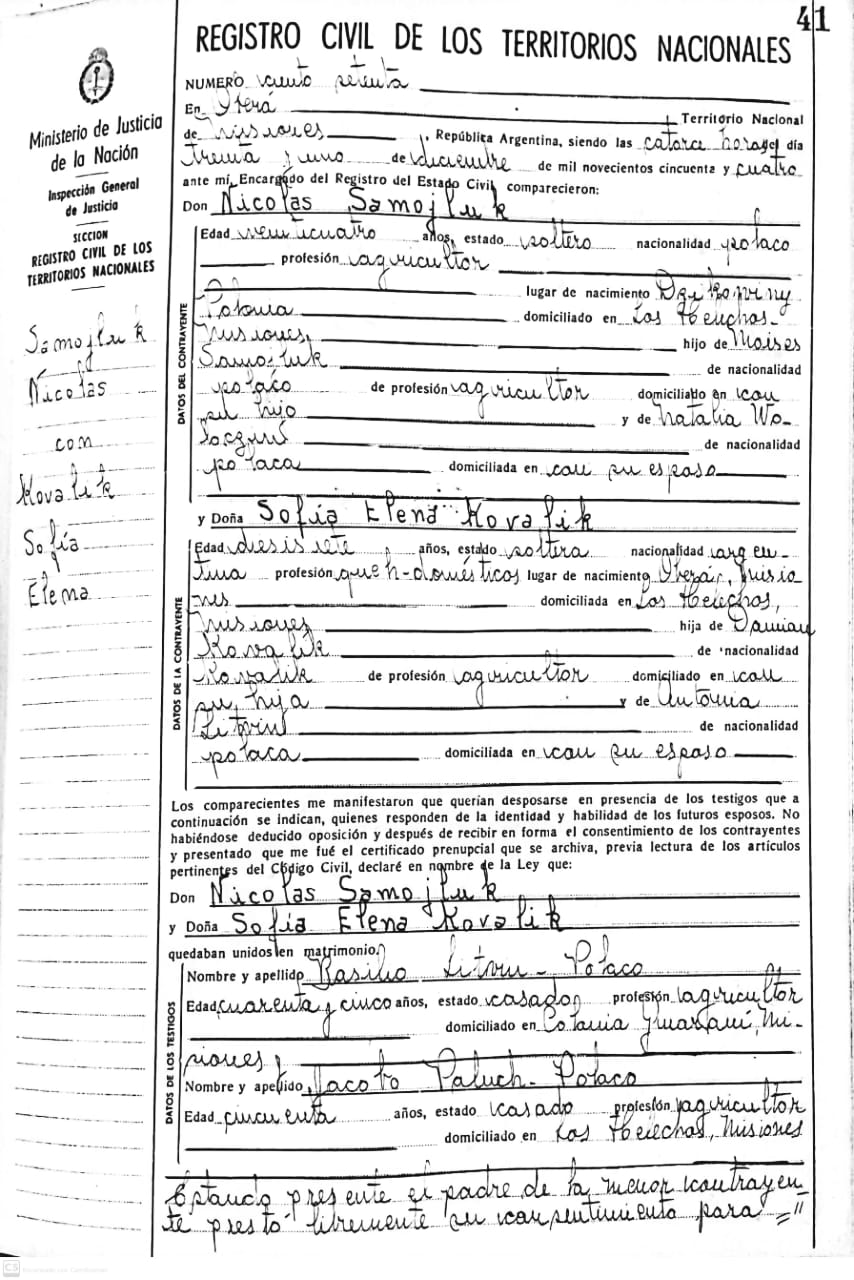 41
REGISTRO CIVIL DE LOS TERRITORIOS NACIONALES
Ministerio de Justicia
de la Nación
Inspección General
de Justicia
SECCION
REGISTRO CIVIL DE LOS
TERRITORIOS NACIONALES
Samojluk
Nicolas
con
Kovalik
Sofía
Elena
NUMERO ciento setenta
En Oberá Territorio Nacional
de Misiones, República Argentina, siendo las catorce horas del día
treinta y uno de diciembre de mil novecientos cincuenta y cuatro
ante mí, Encargado del Registro del Estado Civil comparecieron:
Don Nicolas Samojluk
DATOS DEL CONTRAYENTE
Edad veinticuatro años, estado soltero nacionalidad polaco
profesión agricultor
lugar de nacimiento
Polonia domiciliado en Los Helechos-
Misiones, hijo de Moises
Samojluk de nacionalidad
polaco de profesión agricultor domiciliado en con
su hijo y de Natalia Wo-
de nacionalidad
polaca domiciliada en con su esposo
y Doña Sofía Elena Kovalik
DATOS DE LA CONTRAYENTE
Edad diesisiete años, estado soltera nacionalidad argen-
tina profesión queh-domésticos lugar de nacimiento Oberá, Misio
nes domiciliado en Los Helechos,
Misiones hija de Damian
Kovalik de nacionalidad
Kovalik de profesión agricultor domiciliado en con
su hija y de Antonia
Litvin de nacionalidad
polaca domiciliada en con su esposo
Los comparecientes me manifestaron que querían desposarse en presencia de los testigos que a
continuación se indican, quienes responden de la identidad y habilidad de los futuros esposos. No
habiéndose deducido oposición y después de recibir en forma el consentimiento de los contrayentes
y presentado que me fué el certificado prenupcial que se archiva, previa lectura de los artículos
pertinentes del Código Civil, declaré en nombre de la Ley que:
Don Nicolas Samojluk
y Doña Sofía Elena Kovalik
quedaban unidos en matrimonio.
DATOS DE LOS TESTIGOS
Nombre y apellido Basilio Litvin - Polaco
Edad cuarenta y cinco años, estado casado profesión agricultor
domiciliado en Colonia Guaraní, Mi-
siones
Nombre y apellido Jacobo Paluch - Polaco
Edad cincuenta años, estado casado profesión agricultor
domiciliado en Los Helechos, Misiones
Estando presente el padre de la menor contrayen-
te prestó libremente su consentimiento para ="
CS